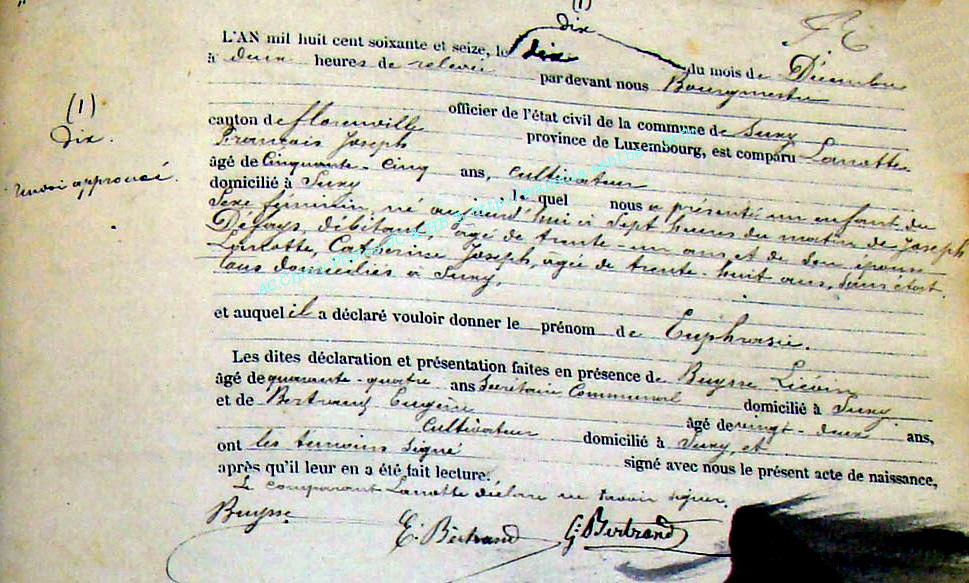 (1)
dix
L'AN mil huit cent soixante et seize, le dix du mois de Décembre
à deux heures de relevée par devant nous Bourgmestre
officier de l'état civil de la commune de Suxy
canton de florenville province de Luxembourg, est comparu Lanotte
François Joseph
âgé de Cinquante-cinq ans, cultivateur
domicilié à Suxy le quel nous a présenté un enfant du
Sexe féminin né aujourd'hui à Sept heures du matin de Joseph
Défays, débitant, âgé de trente-un ans, et de Son épouse
Lanotte, Catherine Joseph, agée de trente-huit ans, Sans état.
tous domiciliés à Suxy,
et auquel il a déclaré vouloir donner le prénom de Euphrasie.
Les dites déclaration et présentation faites en présence de Buysse Liévin
âgé de quarante-quatre ans Secrétaire Communal domicilié à Suxy
et de Bertrand Eugène âgé de vingt-deux ans,
Cultivateur domicilié à Suxy, et
ont les témoins signé signé avec nous le présent acte de naissance,
après qu'il leur en a été fait lecture.
Le comparant Lanotte déclare ne savoir signer.
Buysse E. Bertrand G. Bertrand
(1)
Dix.
renvoi approuvé.